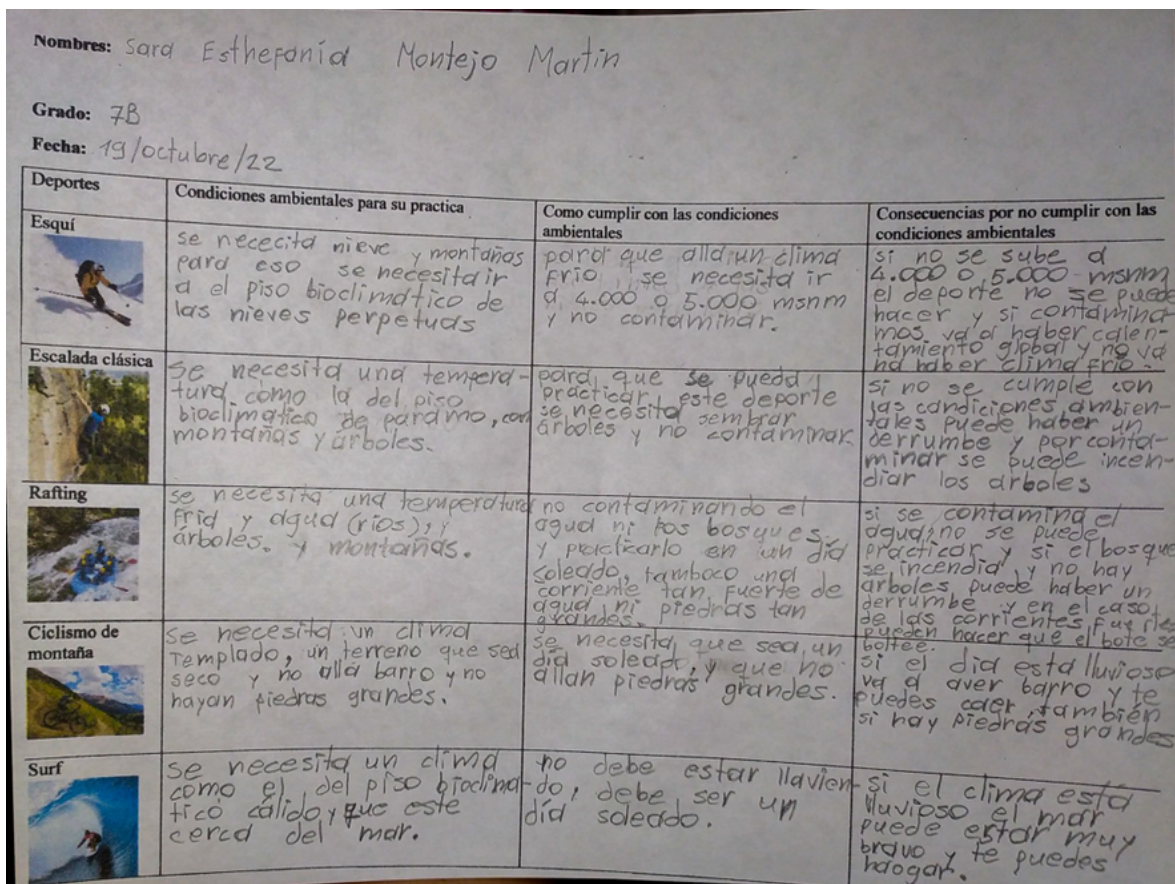 Nombres: Sara Esthefanía Montejo Martin
Grado: 7B
Fecha: 19/octubre/22
Deportes
Condiciones ambientales para su practica
Como cumplir con las condiciones
ambientales
Consecuencias por no cumplir con las
condiciones ambientales
Esquí
se nececita nieve y montañas
para eso se necesita ir
a el piso bioclimático de
las nieves perpetuas
para que alla un clima
frio, se necesita ir
a 4.000 o 5.000 msnm
y no contaminar.
si no se sube a
4.000 o 5.000 msnm
el deporte no se puede
hacer y si contamina-
mos va a haber calen-
tamiento global y no va
ha haber clima frio.
Escalada clásica
se necesita una tempera-
tura como la del piso
bioclimatico de paramo, con
montañas y árboles.
para que se pueda
practicar este deporte
se necesita sembrar
árboles y no contaminar.
si no se cumple con
las condiciones ambien-
tales puede haber un
derrumbe y por conta-
minar se puede incen-
diar los arboles
Rafting
se necesita una temperatura
fria y agua (rios), y
árboles. y montañas.
no contaminando el
agua ni los bosques,
y practicarlo en un día
soleado, tamboco una
corriente tan fuerte de
agua, ni piedras tan
grandes.
si se contamina el
agua, no se puede
practicar y si el bosque
se incendia y no hay
arboles puede haber un
derrumbe y en el caso
de las corrientes fuertes
pueden hacer que el bote se
boltee.
Ciclismo de
montaña
se necesita un clima
templado, un terreno que sea
seco y no alla barro y no
hayan piedras grandes.
se necesita que sea un
día soleado, y que no
allan piedras grandes.
si el dia esta lluvioso
va a aver barro y te
puedes caer, también
si hay piedras grandes
Surf
se necesita un clima
como el del piso bioclima-
tico cálido y que este
cerca del mar.
no debe estar llavien-
do, debe ser un
día soleado.
si el clima está
lluvioso el mar
puede estar muy
bravo y te puedes
haogar.